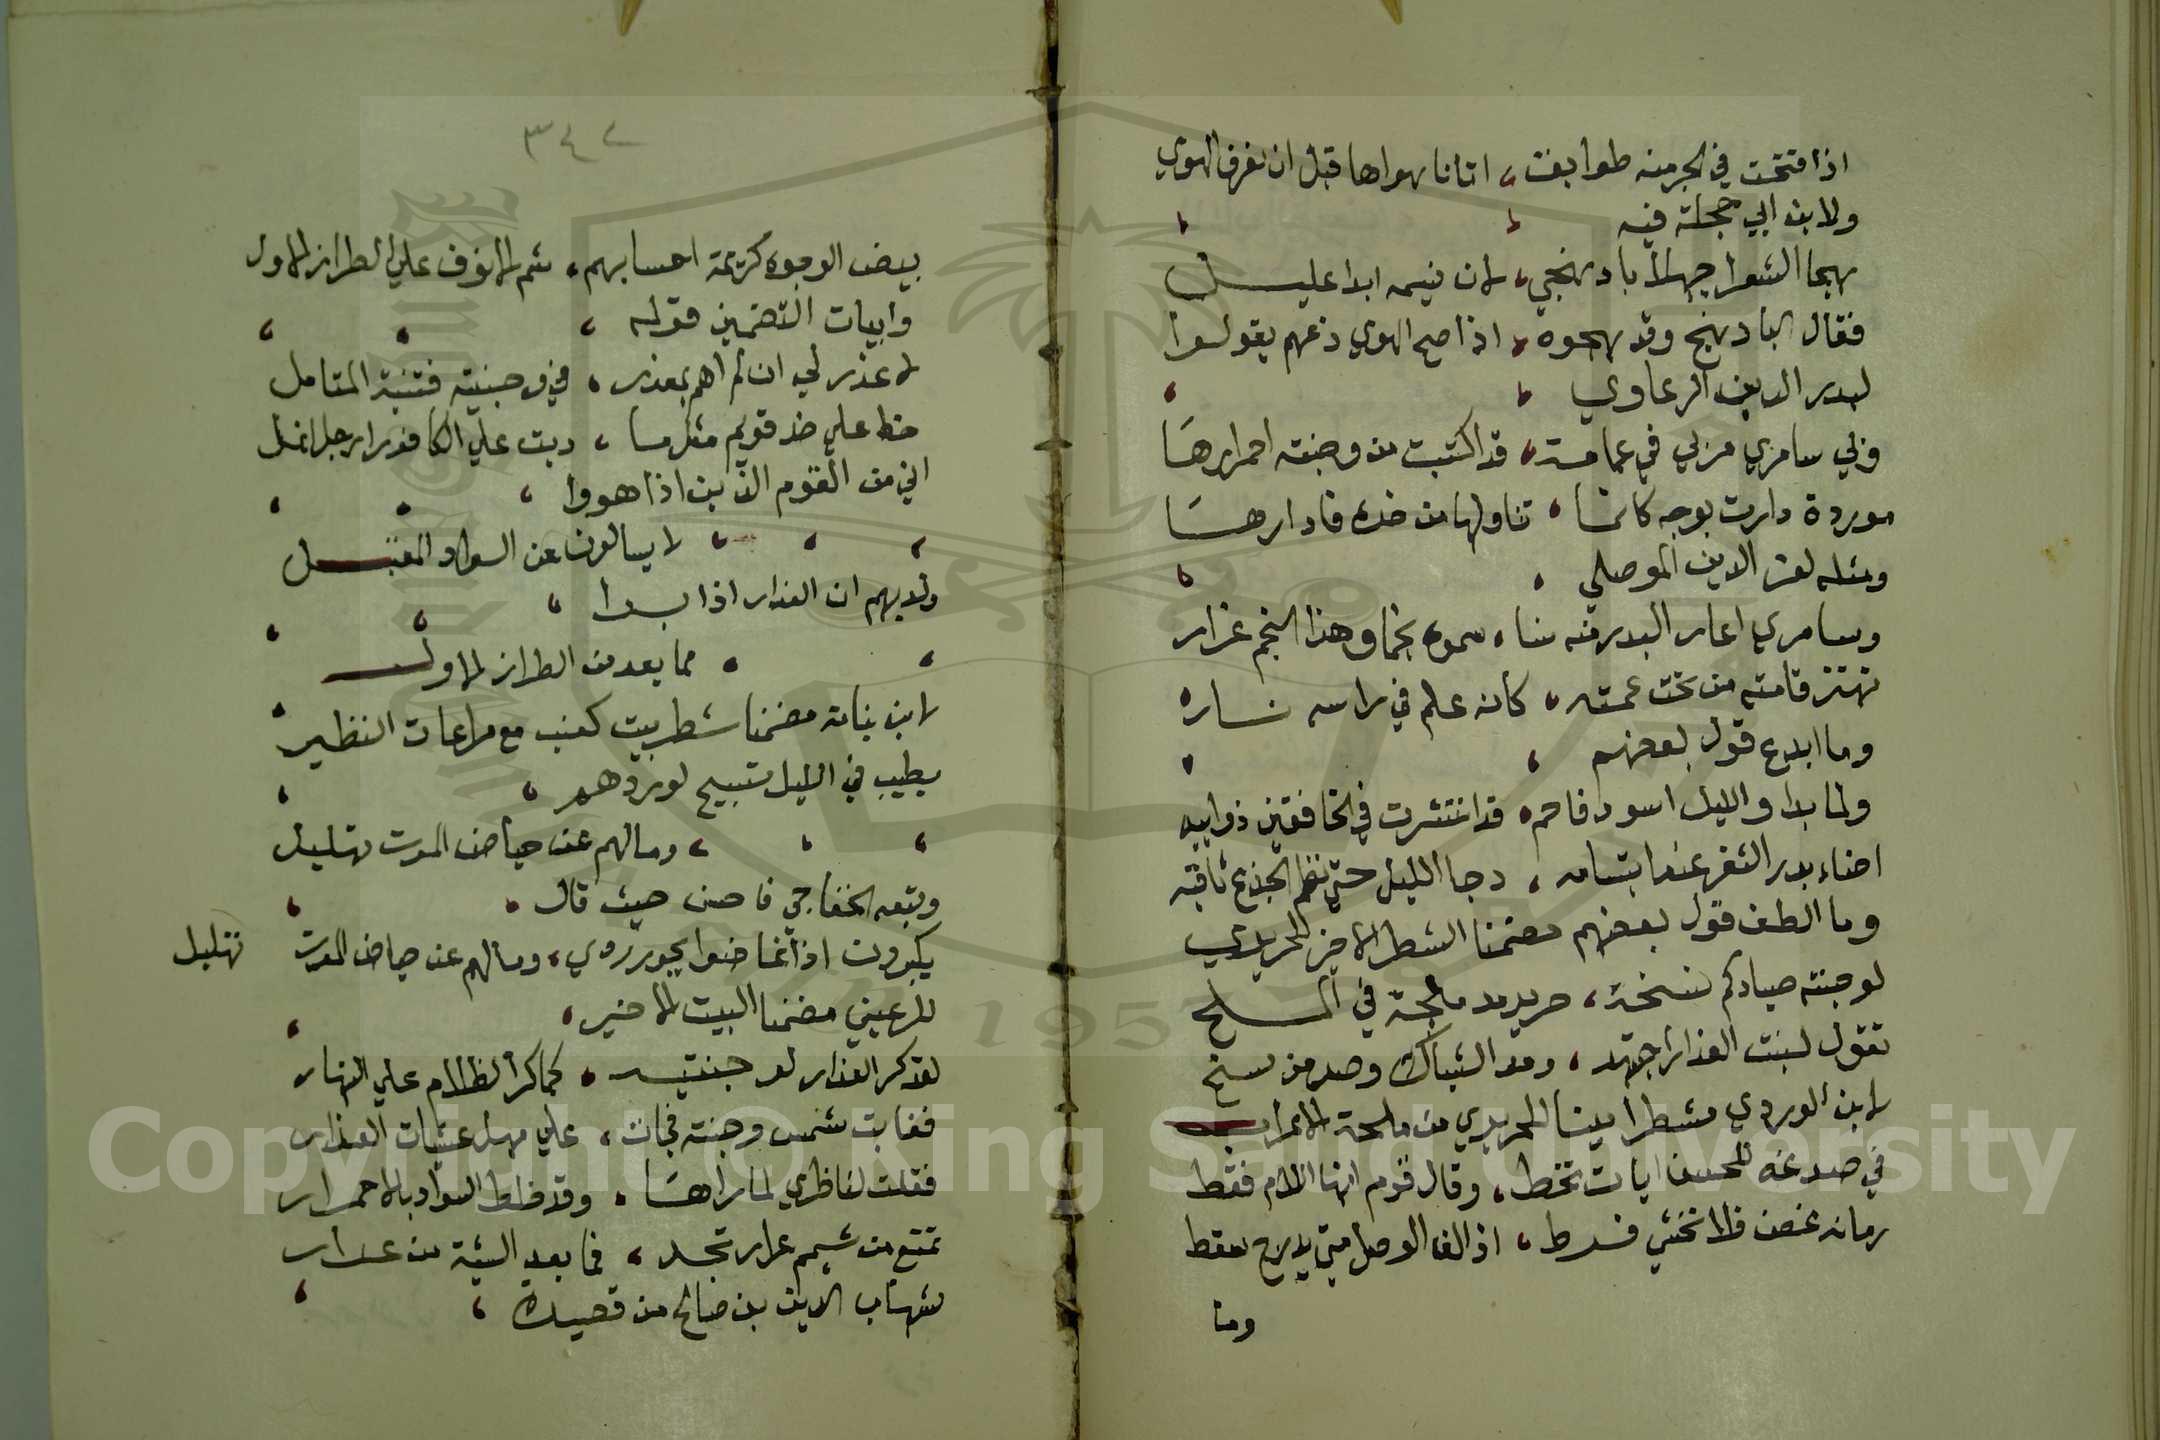 اذا فتحت في الجو منه طوايف، اتانا هواها قبل ان نعرف الهوي
ولابن ابي حجلة فيه
هجا الشعرا جهلا بادهنجي، لان نسيمه ابدا عليـــل
فقال البادهنج وقد هجوه، اذا صح الهوي دعهم يقولوا
لبدر الدين الزعاوي
وبي سامري مر بي في عمامــة، قد اكتسبت من وجنته احمرارهــا
موردة دارت بوجه كانما، تناولها من خده فادارهــا
ومثله لعز الدين الموصلي
وسامري اعار البدر منه سنا، سموه نجما وهذا النجم غرار
تهتز قامته من تحت عمته، كانه علم في راسه نــاره
وما ابدع قول بعضهم
ولما بدا والليل اسود فاحم، قد انتشرت في الخافقين ذوايبه
اضاء بدر الثغر عند ابتسامه، دجا الليل حتي نظم الجذع ثاقبه
وما الطف قول بعضهم مضمنا الشطر الاخير للحريري
لوجنته صيادكم نسخة، حريرية ملحة في الملــح
تقول لسنت العذار اجتهد، ومد الشباك وصد من سنح
لابن الوردي مشطرا بيتا للحريري من ملحة الاعراب
في صدغه للحسن ايات تخط، وقال قوم انها اللام فقط
رمانه غصن فلا تخشي فــرط، اذ الف الوصل متي يدرج سقط
وما
٣٤٢
بيض الوجوه كريمة احسابهم، شم الانوف علي الطراز الاول
وابيات التضمين قوله
لا عذر لي ان لم اهم بمعذر، في وجنتيه فتنة المتامل
خط علي خد قويم مثل مسا، دبت علي الكافور ارجل انمل
اني من القوم الذين اذا هووا
لا يسالون عن السواد المقبــل
ولديهم ان العذار اذا بــدا
مما يعد من الطراز الاول
لابن نباتة مضمنا شطر بيت كعب مع مراعات النظير
يطيب في الليل تسبيح لوردهم
وما لهم عن حياض الموت تهليل
وتبعه الخفاجي فاحسن حيث قال
يكبرون اذا خاضوا بحور ردي، وما لهم عن حياض الموت تهليل
للرعيني مضمنا البيت الاخير
لقد كر العذار لوجنتيــه، كما كر الظلام علي النهار
فغابت شمس وجنته فجات، علي مهل عشيات العذار
فقلت لناظري لما راهــا، وقد خلط السواد بالاحمرار
تمتع من شميم عرار نجــد، فما بعد العشية من عــرار
لشهاب الدين بن صالح من قصيدة